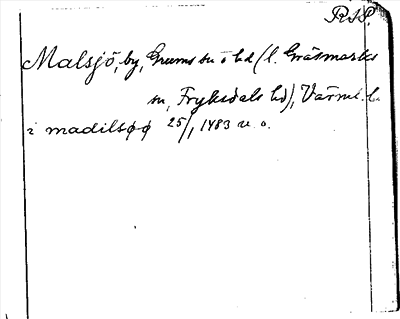 RSP.
Malsjö, by, Grums sn o hd (l. Gräsmarks
sn, Fryksdals hd), Värml. l.
i madilsøø 25/1 1483 u. o.